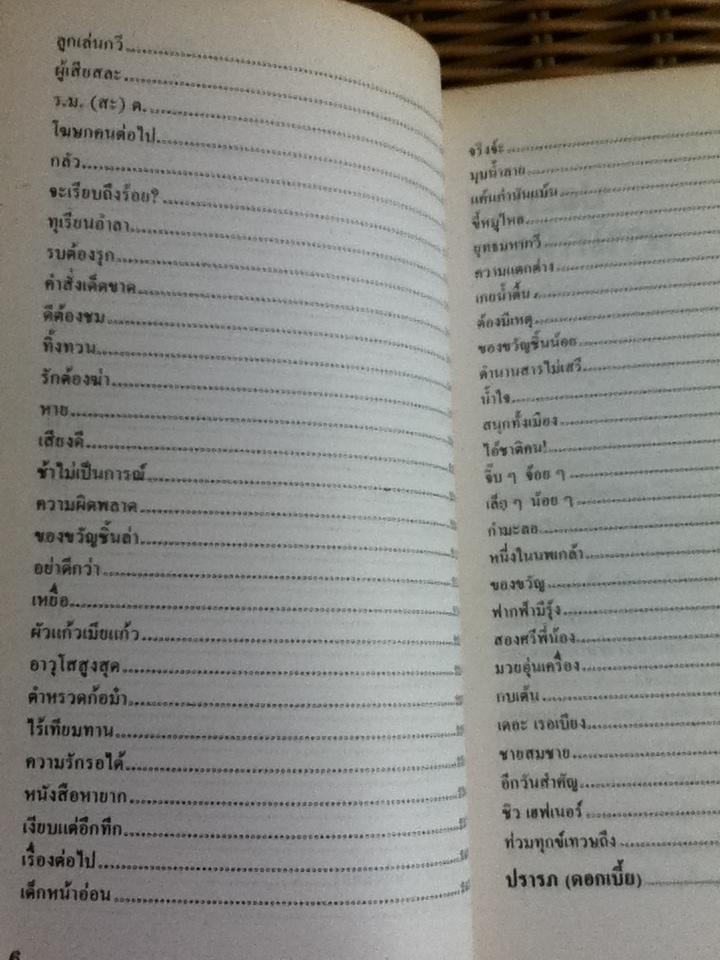 ลูกเล่นกวี
ผู้เสียสละ
ร.ม. (สะ) ต.
โฆษกคนต่อไป
กลัว
จะเรียบถึงร้อย?
ทุเรียนอำลา
รบต้องรุก
คำสั่งเด็ดขาด
ดีต้องชม
ทิ้งทวน
รักต้องฆ่า
หาย
เสียงดี
ช้าไม่เป็นการณ์
ความผิดพลาด
ของขวัญชิ้นล่า
อย่าดีกว่า
เหยื่อ
ผัวแก้วเมียแก้ว
อาวุโสสูงสุด
ตำหรวดก้อมำ
ไร้เทียมทาน
ความรักรอได้
หนังสือหายาก
เงียบแต่อึกทึก
เรื่องต่อไป
เด็กหน้าอ่อน
6
จริงจ้ะ
มุมน้ำลาย
แค้นกำนันแม้น
ขี้หมูไหล
ยุทธมหากวี
ความแตกต่าง
เกยน้ำตื้น
ต้องมีเหตุ
ของขวัญชิ้นน้อย
ตำนานสารไม่เสรี
น้ำใจ
สนุกทั้งเมือง
ไอ้ชาติคน!
จิ๊บ ๆ จ้อย ๆ
เล็ก ๆ น้อย ๆ
กำมะลอ
หนึ่งในนพเกล้า
ของขวัญ
ฟากฟ้ามีรุ้ง
สองศรีพี่น้อง
มวยอุ่นเครื่อง
กบเต้น
เดอะ เรอเบียง
ชายสมชาย
อีกวันสำคัญ
ชิว เฮฟเนอร์
ท่วมทุกข์เทวษถึง
ปรารภ (ดอกเบี้ย)